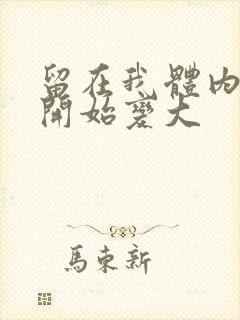 留在我體內
開始變大
馬東新